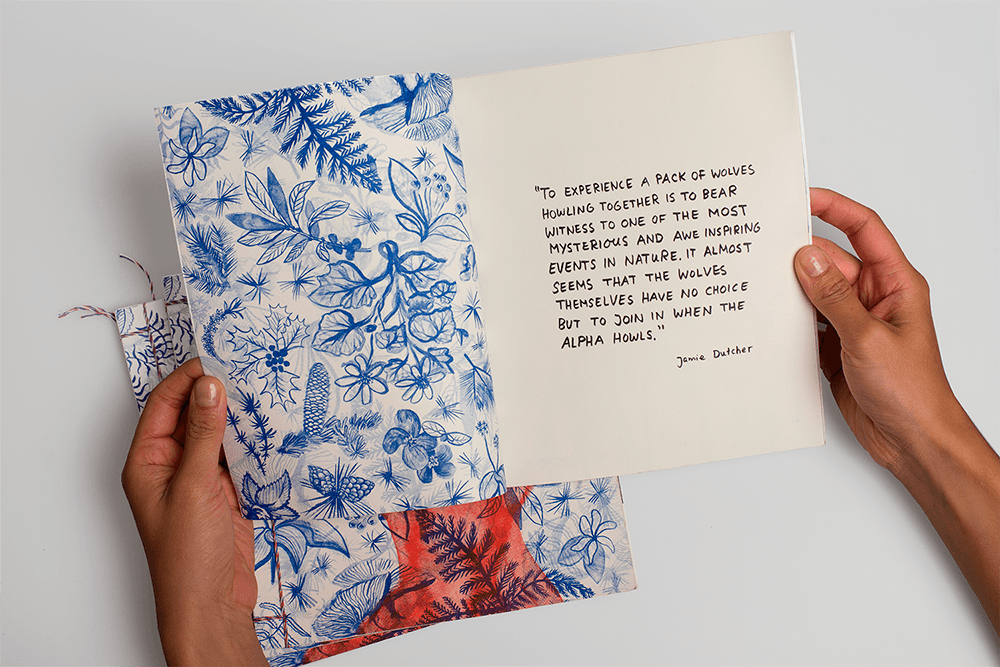 "TO EXPERIENCE A PACK OF WOLVES
HOWLING TOGETHER IS TO BEAR
WITNESS TO ONE OF THE MOST
MYSTERIOUS AND AWE INSPIRING
EVENTS IN NATURE. IT ALMOST
SEEMS THAT THE WOLVES
THEMSELVES HAVE NO CHOICE
BUT TO JOIN IN WHEN THE
ALPHA HOWLS."
Jamie Dutcher